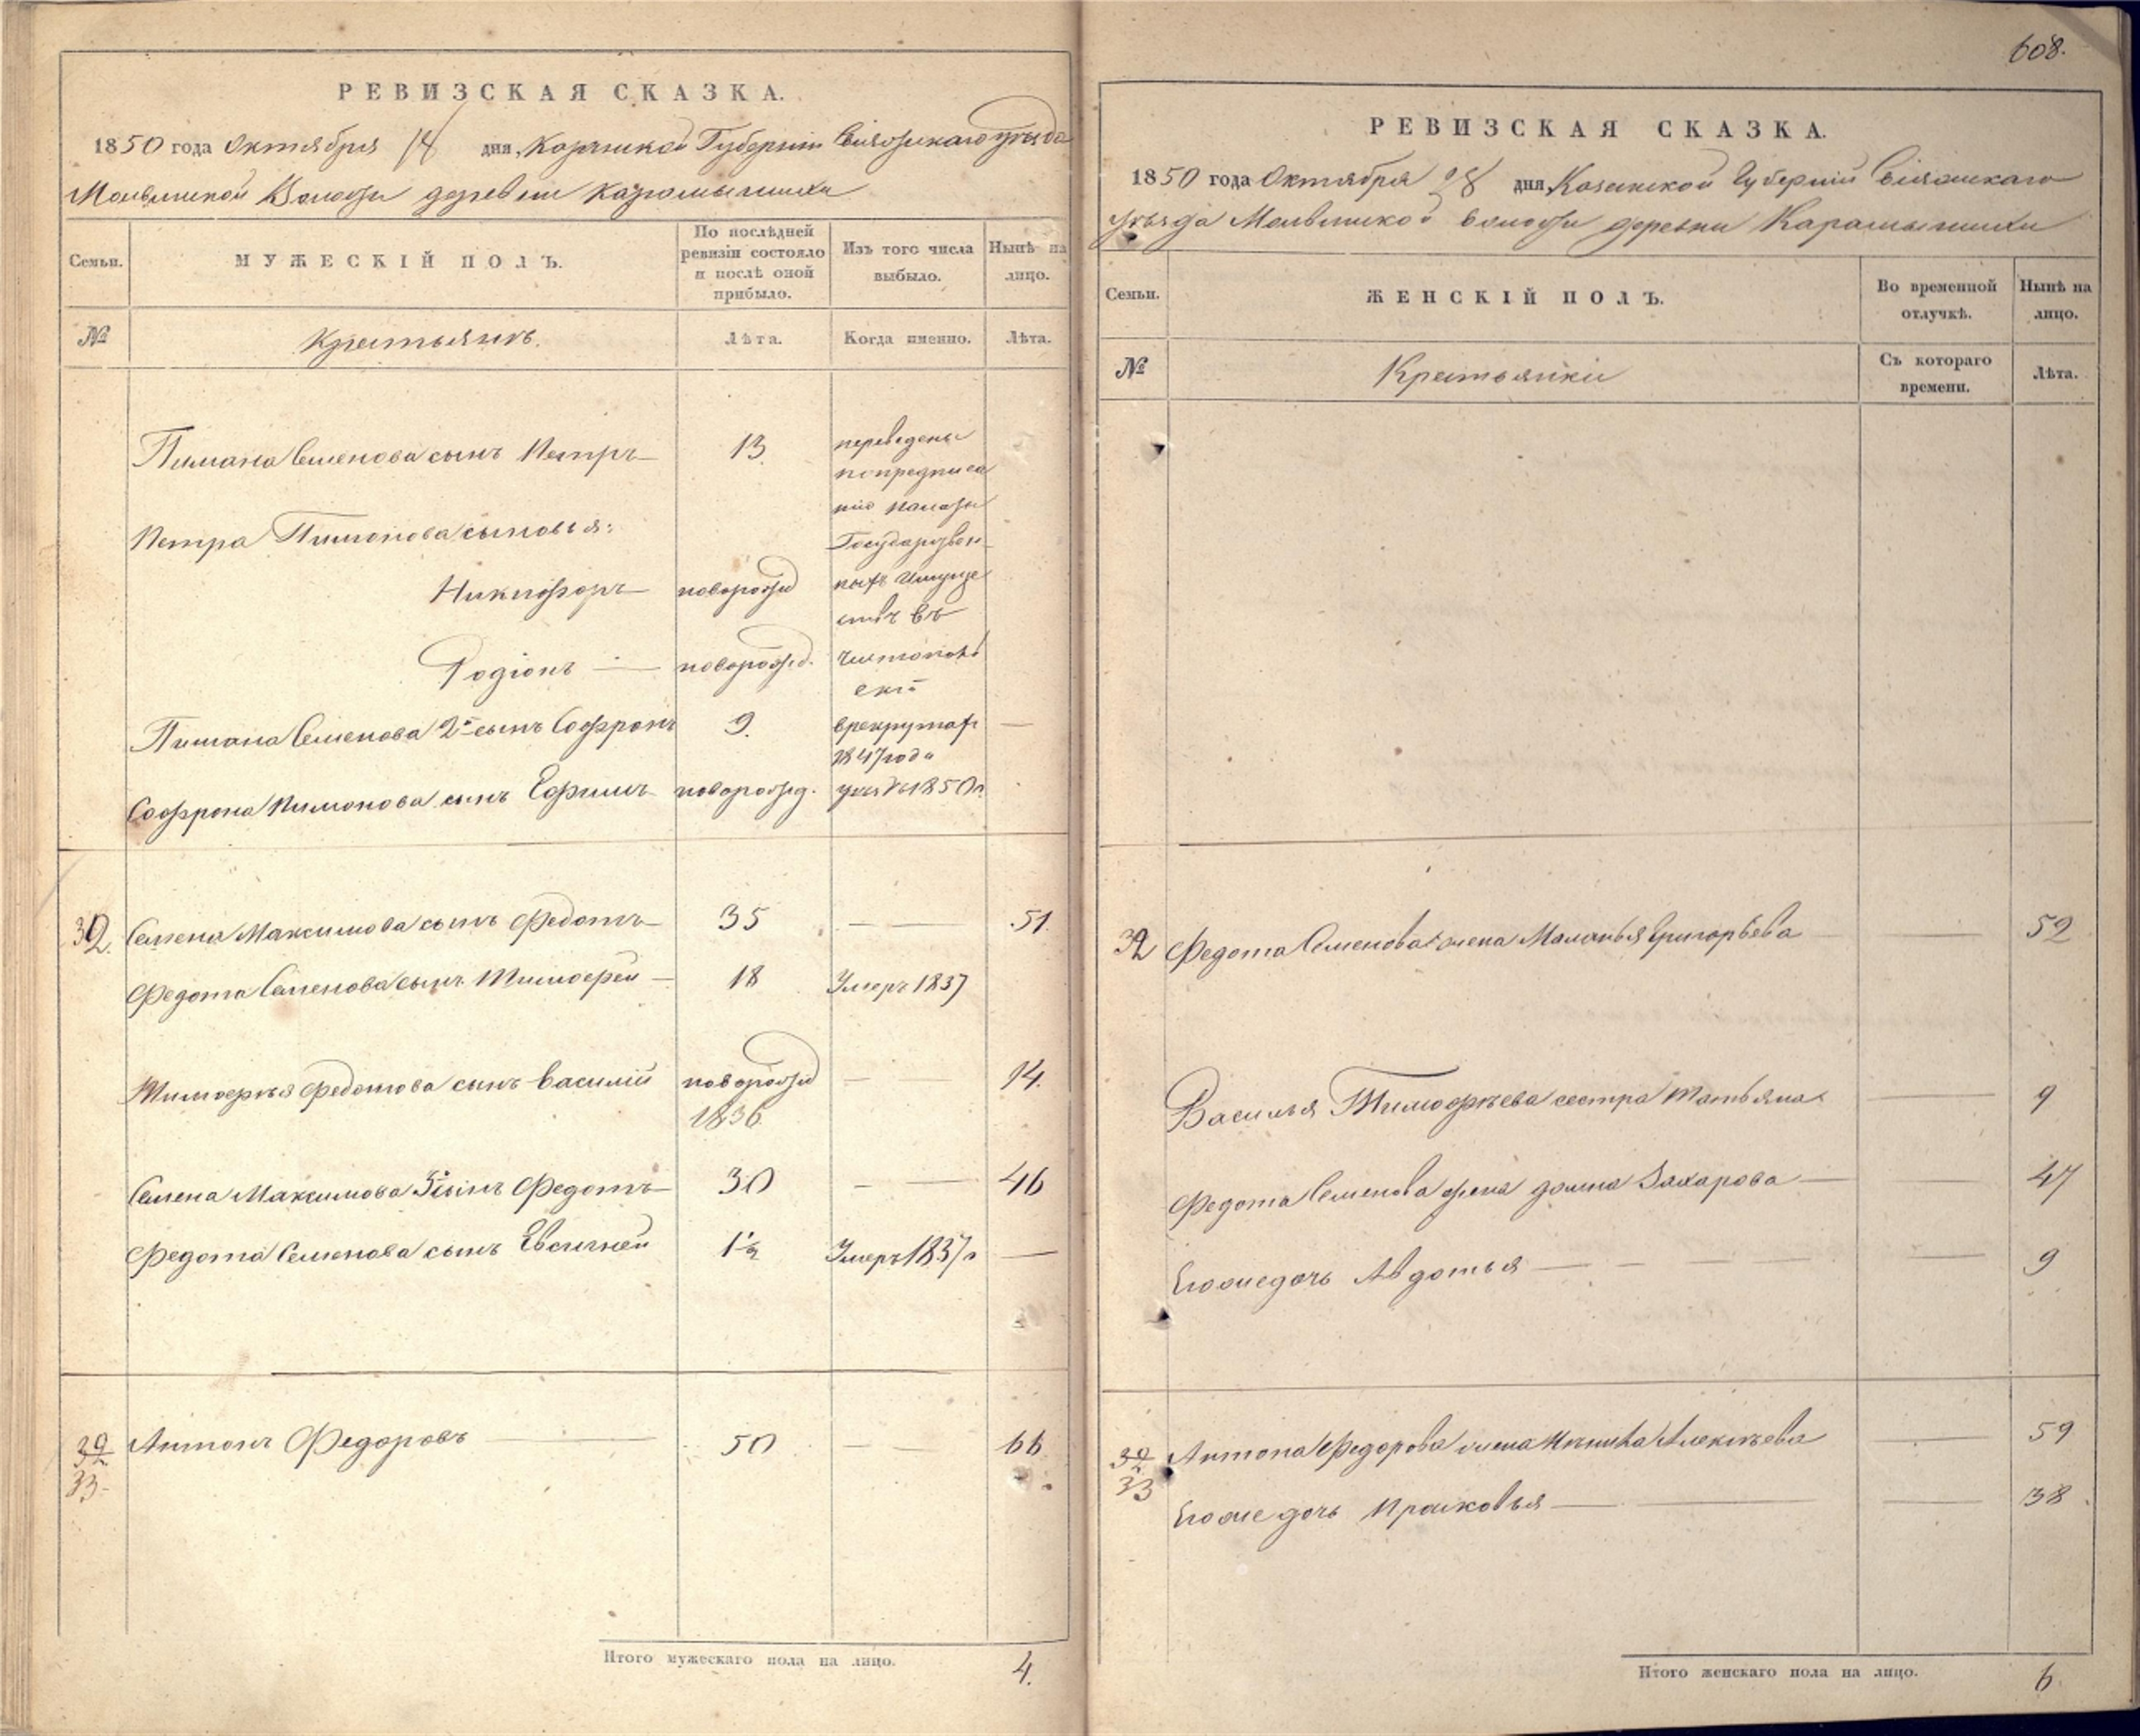 РЕВИЗСКАЯ СКАЗКА.
1850 года Октября 18 дня, Казанской Губернiи Свiяжскаго уѣзда
Молвинской Волости деревни Карамышихи
Семьи. МУЖЕСКIЙ ПОЛЪ. По послѣдней ревизiи состояло и послѣ оной прибыло. Изъ того числа выбыло. Нынѣ на лицо.
№ Крестьянъ. Лѣта. Когда именно. Лѣта.
Пимана Семенова сынъ Петръ 13 переведены
по предписа
нiю палаты
Петра Пимонова сыновья: Государствен
Никифоръ новорожд ныхъ Имуще
ствъ въ
Родiонъ — новорожд. Чистополь
скiй
Пимана Семенова 2й сынъ Софронъ 9. в рекрутахъ —
1847 года
Софрона Пимонова сынъ Ефимъ новорожд. 1850 г.
32. Семена Максимова сынъ Федотъ 35 — — 51.
Федота Семенова сынъ Тимофей — 18 Умеръ 1837
Тимофея Федотова сынъ Василiй новорожд — 14.
1836.
Семена Максимова 3й сынъ Федотъ 30 — — 46
Федота Семенова сынъ Евсигней 1½ Умеръ 1837 г —
32 Антонъ Федоровъ — 50 — — 66
33.
Итого мужескаго пола на лицо. 4.
608.
РЕВИЗСКАЯ СКАЗКА.
1850 года Октября 28 дня, Казанской Губернiй Свiяжскаго
Уѣзда Молвинской волости деревни Карамышихи
Семьи. ЖЕНСКIЙ ПОЛЪ. Во временной отлучкѣ. Нынѣ на лицо.
№ Крестьянки Съ котораго времени. Лѣта.
32 Федота Семенова жена Маланья Григорьева — 52
Василья Тимофѣева сестра Татьяна — 9
Федота Семенова жена Домна Захарова — — 47
Его же дочь Авдотья — — — — — 9
32 Антона Федорова жена Алексѣева — 59
33
Его же дочь Прасковья — — — 38.
Итого женскаго пола на лицо. 6.